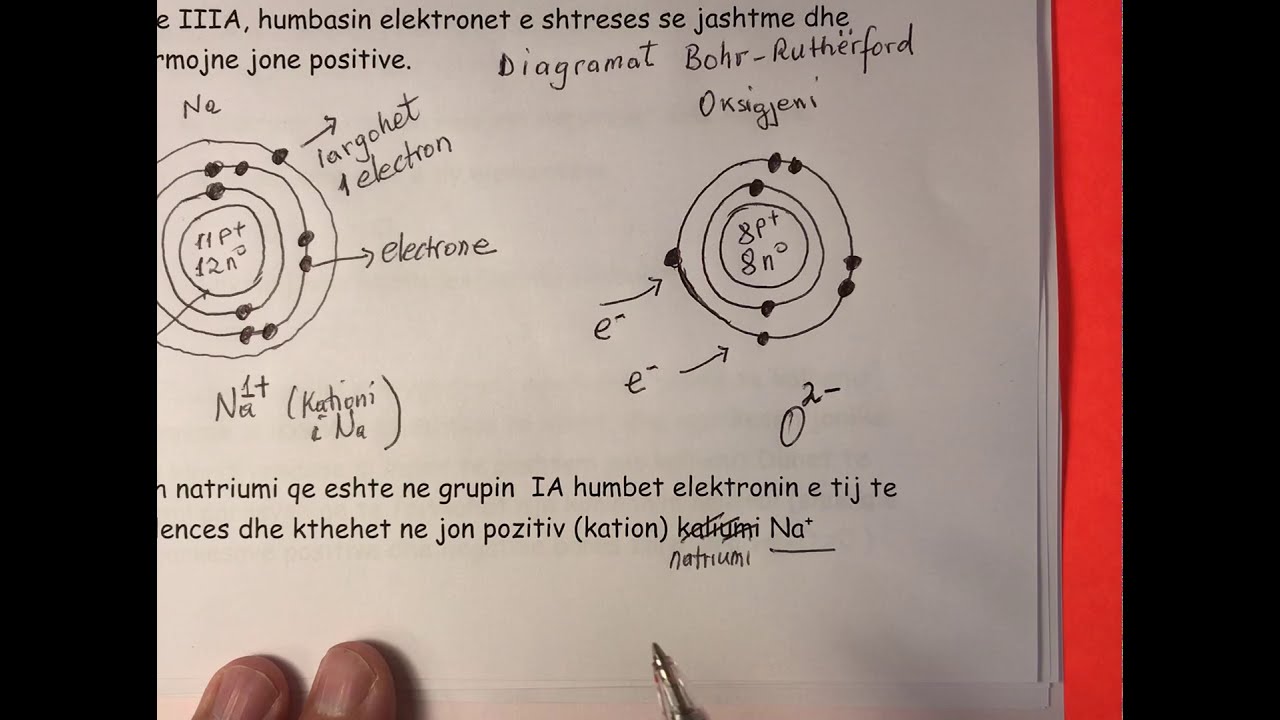 e IIIA, humbasin elektronet e shtreses se jashtme dhe
rmojne jone positive.
Diagramat Bohr-Ruthërford
Na
Oksigjeni
largohet
1 electron
11p+
12n0
electrone
8p+
8n0
e-
e-
Na1+ (Kationi
i Na)
O2-
n natriumi qe eshte ne grupin IA humbet elektronin e tij te
lences dhe kthehet ne jon pozitiv (kation) kaliumi Na+
natriumi